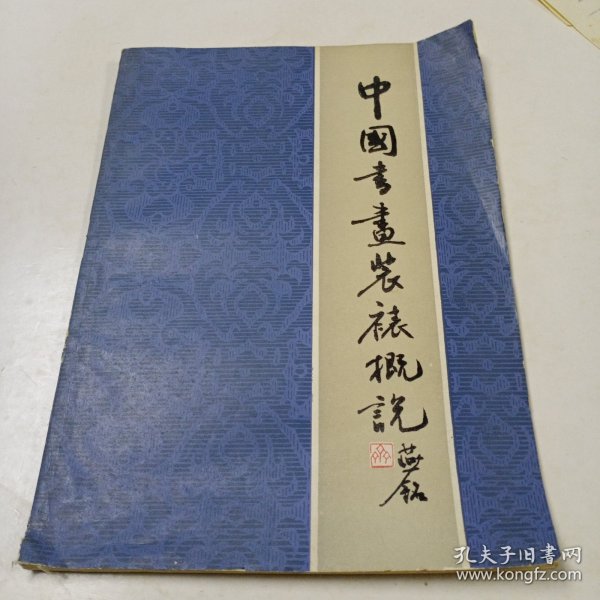 中國书畫装裱概說
燕銘
孔夫子旧書网
www.kongfz.com